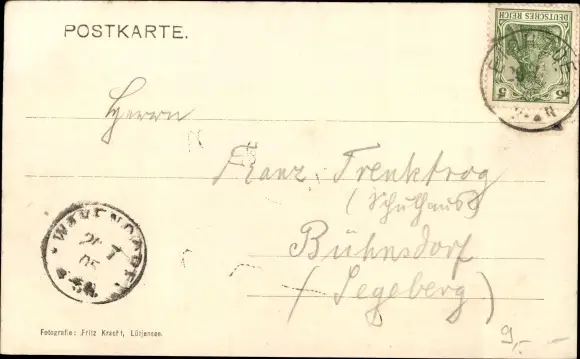 POSTKARTE.
DEUTSCHES REICH
5 5
Herrn
Franz Trenktrog
(Schulhaus)
Bühnsdorf
(Segeberg)
WAKENDORF
20 7
05
Fotografie: Fritz Kracht, Lütjensee.
9,-